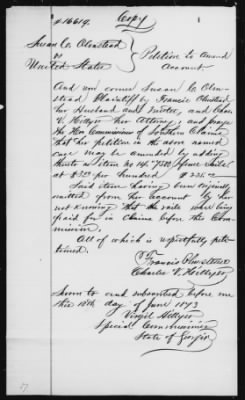 # 16614.
Copy
Susan C. Olmstead
vs
United States
Petition to amend
Account.
And now comes Susan C. Olm-
stead Plaintiff by Francis Olmstead
her Husband and Trustee, and Charles
V. Hillyer her Attorney, and prays
the Hon Commissioners of Southern Claims
that her petition in the above named
case may be amended by adding
thereto as item No 14. 7500
at $3.00 per hundred $225.00
Said item having been originally
omitted from her account by her
not knowing that the rails were being
paid for in Claims before this Com-
mission.
All of which is respectfully peti-
tioned.
Francis Olmstead
Charles V. Hillyer
Sworn to and subscribed before me
this 18th day of June 1873
Virgil Hillyer
Special Commissioner
State of Georgia